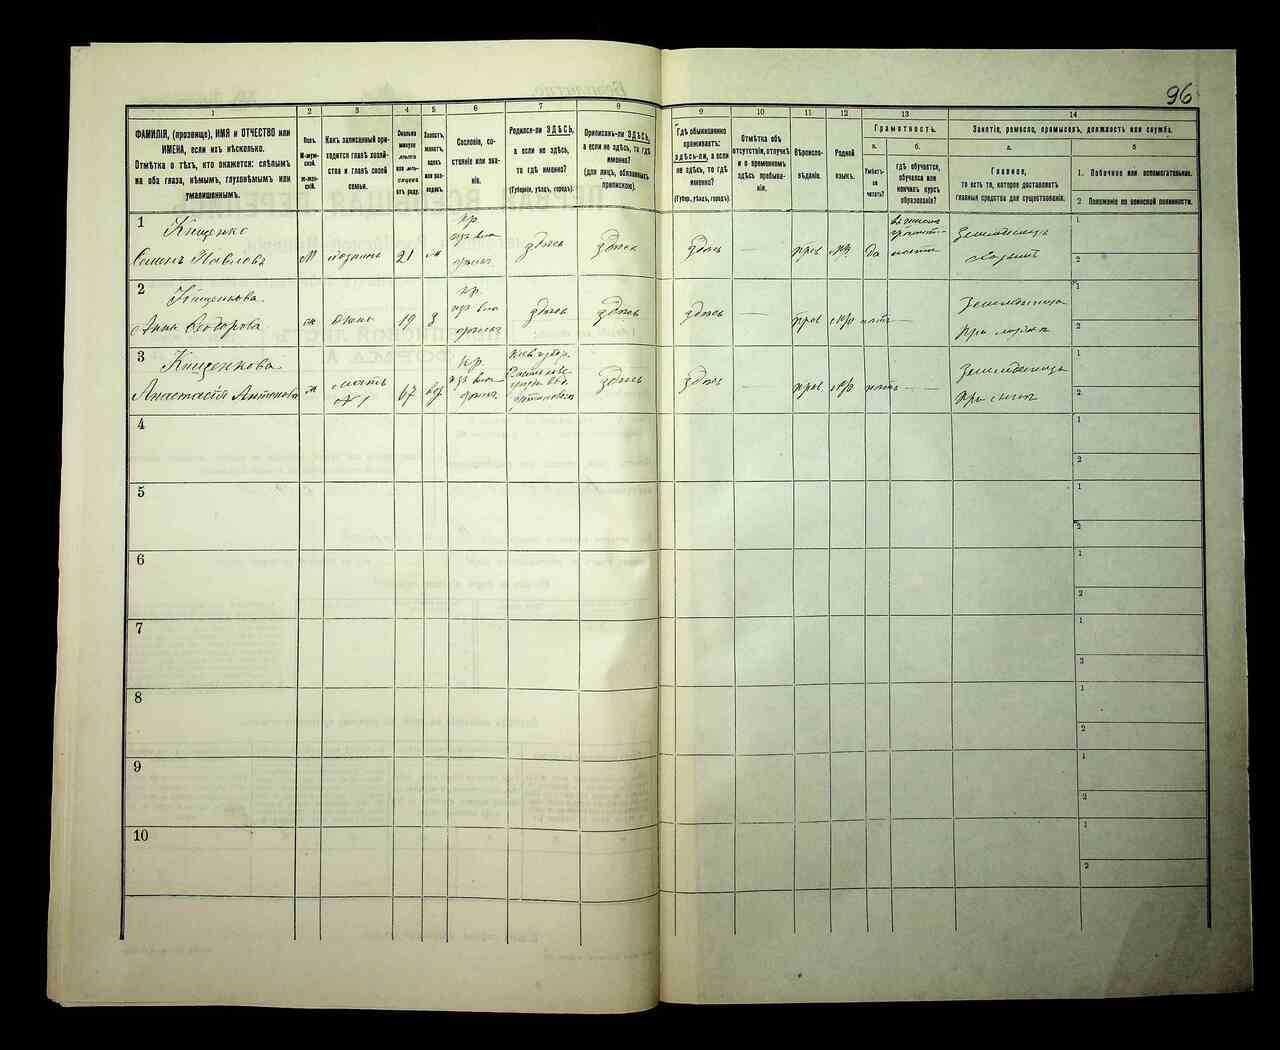 96
1
2
3
4
5
6
7
8
9
10
11
12
13
14
ФАМИЛІЯ, (прозвище), ИМЯ и ОТЧЕСТВО или
ИМЕНА, если ихъ нѣсколько.
Отмѣтка о тѣхъ, кто окажется: слѣпымъ
на оба глаза, нѣмымъ, глухонѣмымъ или
умалишеннымъ.
Полъ.
М-мужской.
ж-женскій.
Какъ записанный при-
ходится главѣ хозяй-
ства и главѣ своей
семьи.
Сколько
минуло
лѣтъ
или мѣ-
сяцевъ
отъ роду.
Холостъ,
женатъ,
вдовъ
или раз-
веденъ.
Сословіе, со-
стояніе или зва-
ніе.
Родился-ли ЗДѢСЬ,
а если не здѣсь,
то гдѣ именно?
(Губернія, уѣздъ, городъ).
Приписанъ-ли ЗДѢСЬ,
а если не здѣсь, то гдѣ
именно?
(для лицъ, обязанныхъ
припискою).
Гдѣ обыкновенно
проживаетъ:
здѣсь-ли, а если
не здѣсь, то гдѣ
именно?
(Губерн., уѣздъ, городъ).
Отмѣтка объ
отсутствіи, отлучкѣ
и о временномъ
здѣсь пребыва-
ніи.
Вѣроиспо-
вѣданіе.
Родной
языкъ.
Грамотность.
а.
б.
Умѣетъ-
ли
читать?
гдѣ обучается,
обучался или
кончилъ курсъ
образованія?
Занятіе, ремесло, промыселъ, должность или служба.
а.
б.
Главное,
то есть то, которое доставляетъ
главныя средства для существованія.
1. Побочное или вспомогательное.
2 Положеніе по воинской повинности.
1
Кищенко
Семенъ Павловъ
М
хозяинъ
21
кр.
изъ вла
здѣсь
здѣсь
здѣсь
—
прав
да
Земледѣлецъ
хозяинъ
1
2
2
Кищенкова
Анна Федорова
ж
жена
19
з
кр.
изъ вла
здѣсь
здѣсь
здѣсь
—
прав
нѣтъ
—
Земледѣлица
при мужѣ
1
2
3
Кищенкова
Анастасія Антонова
ж
мать
№ 1
67
вд
кр.
изъ вла
здѣсь
здѣсь
—
прав
нѣтъ
—
Земледѣлица
при сынѣ
1
2
4
1
2
5
1
2
6
1
2
7
1
2
8
1
2
9
1
2
10
1
2